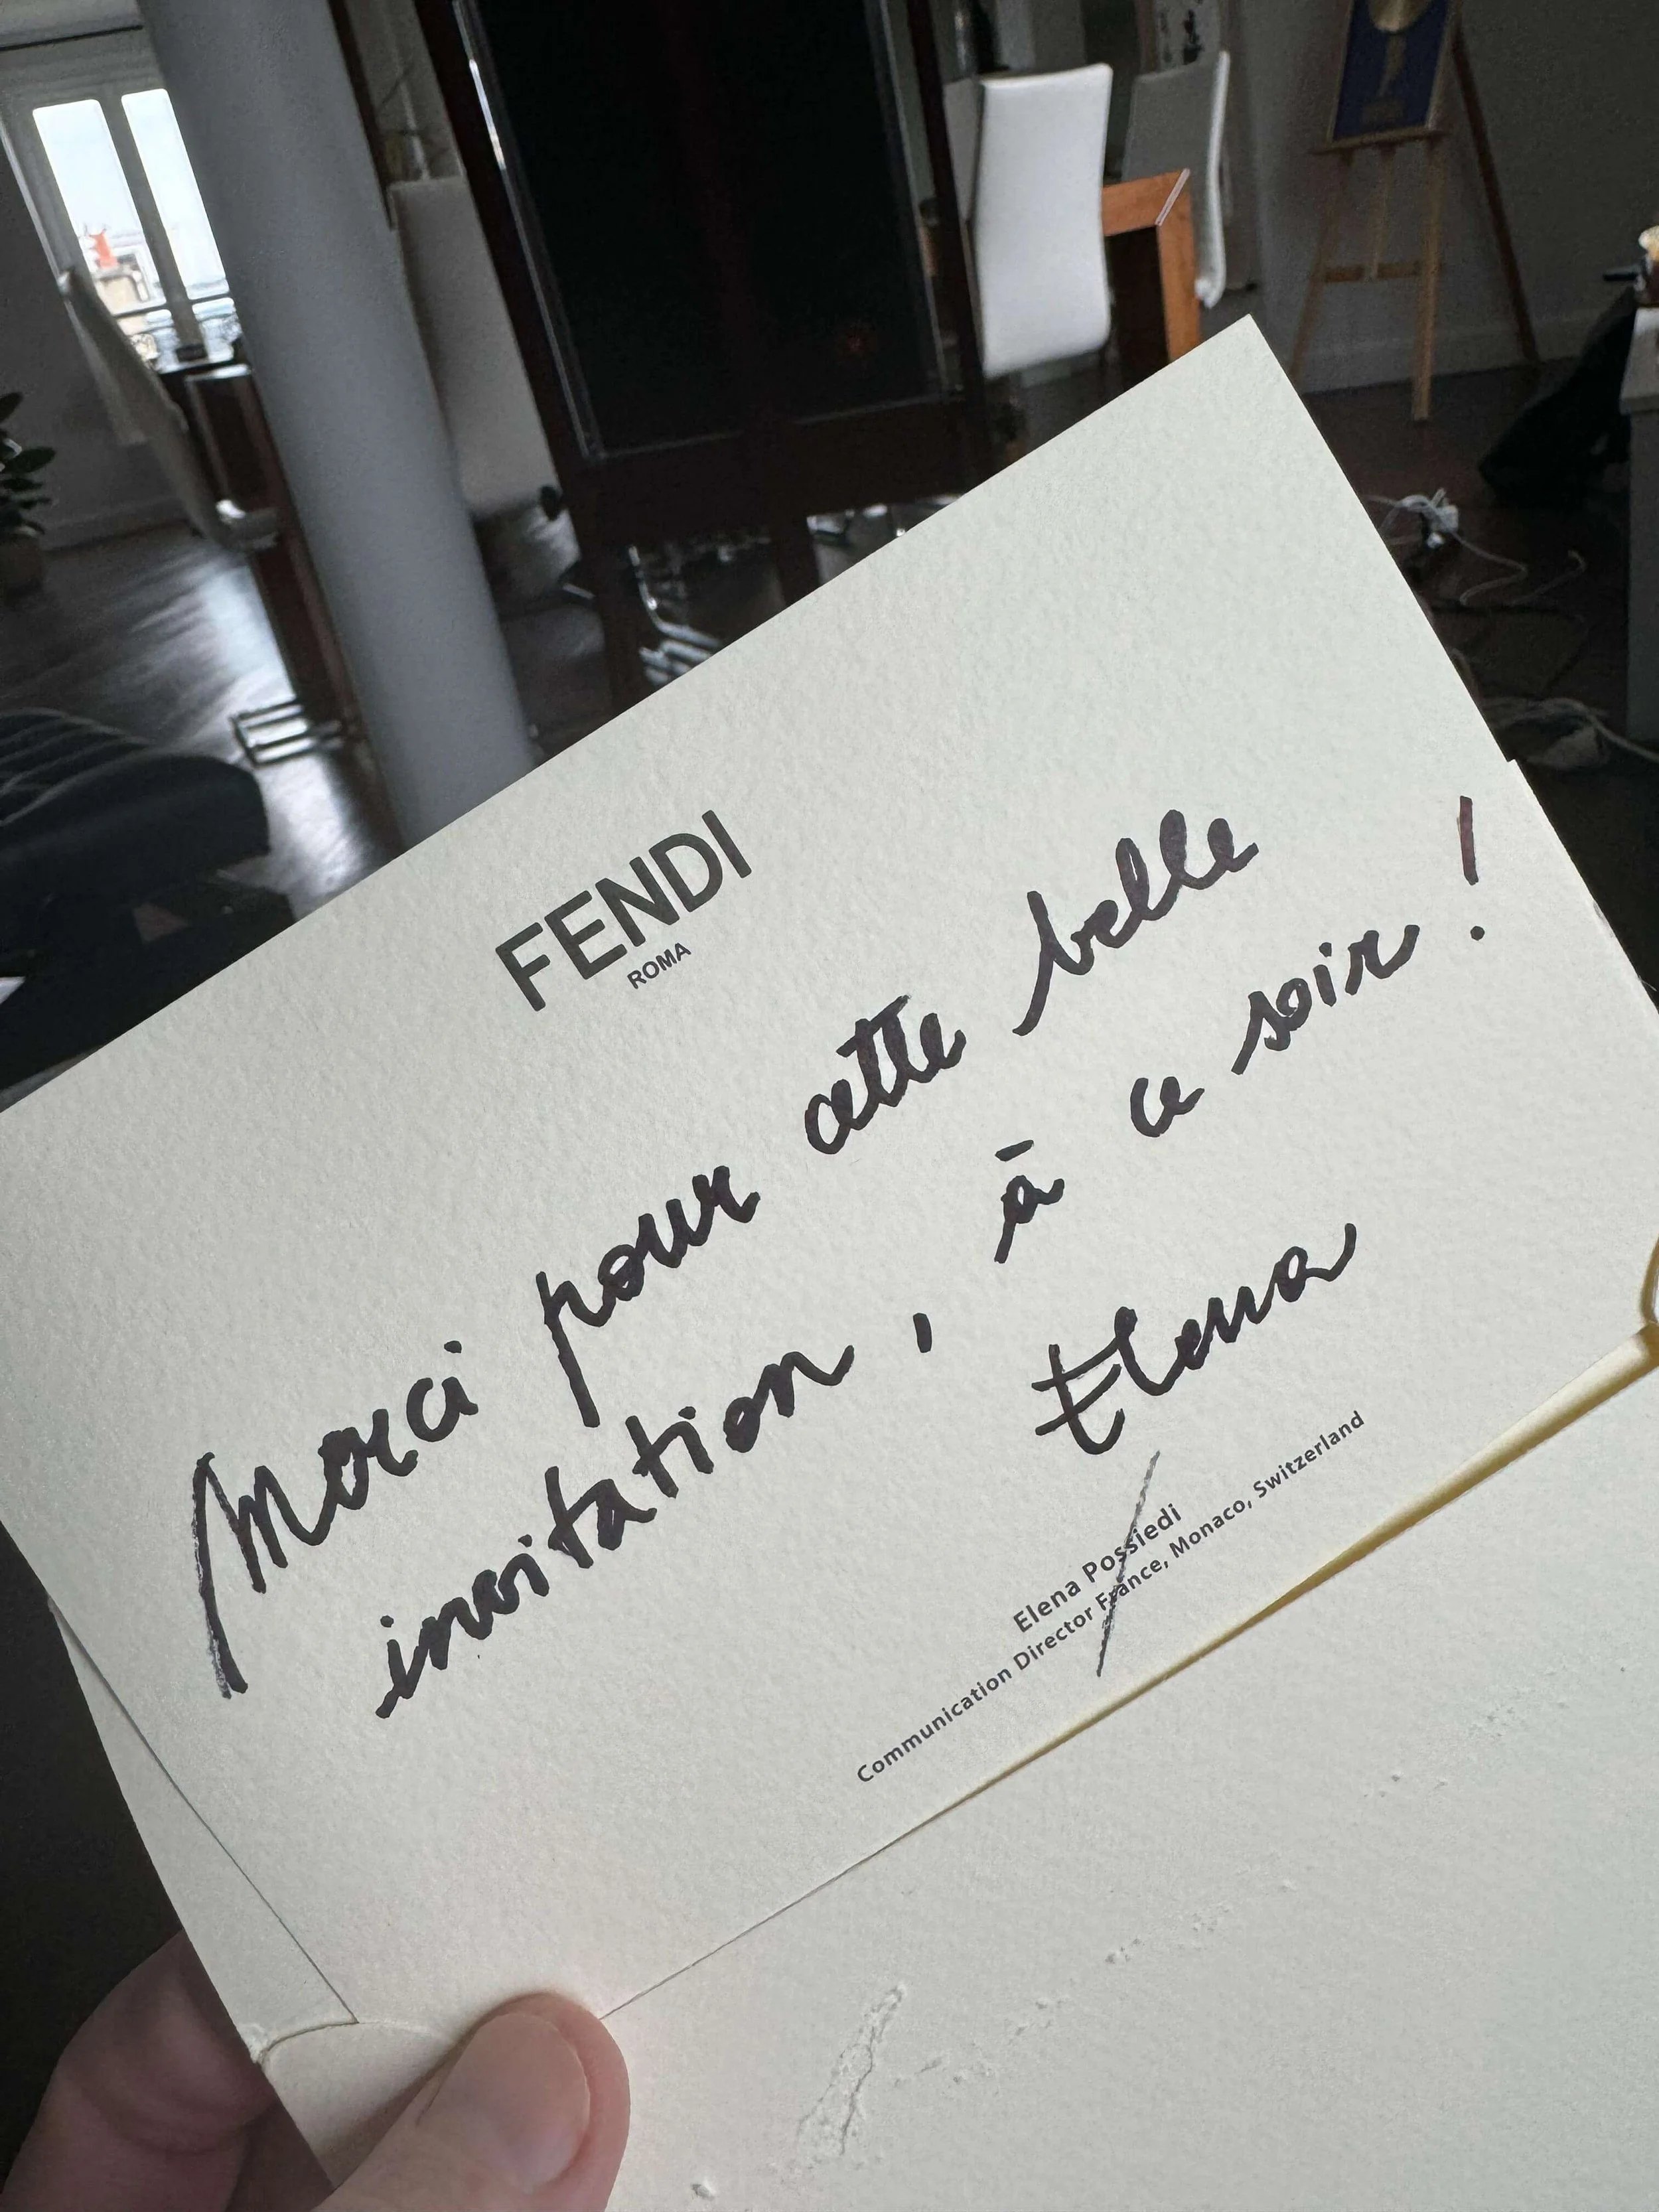 FENDI
ROMA
Merci pour cette belle
invitation, à ce soir !
Elena
Elena Possiedi
Communication Director France, Monaco, Switzerland